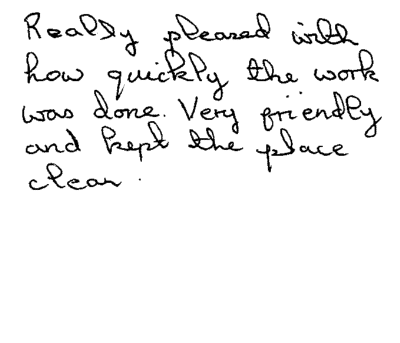 Really pleased with
how quickly the work
was done. Very friendly
and kept the place
clean.